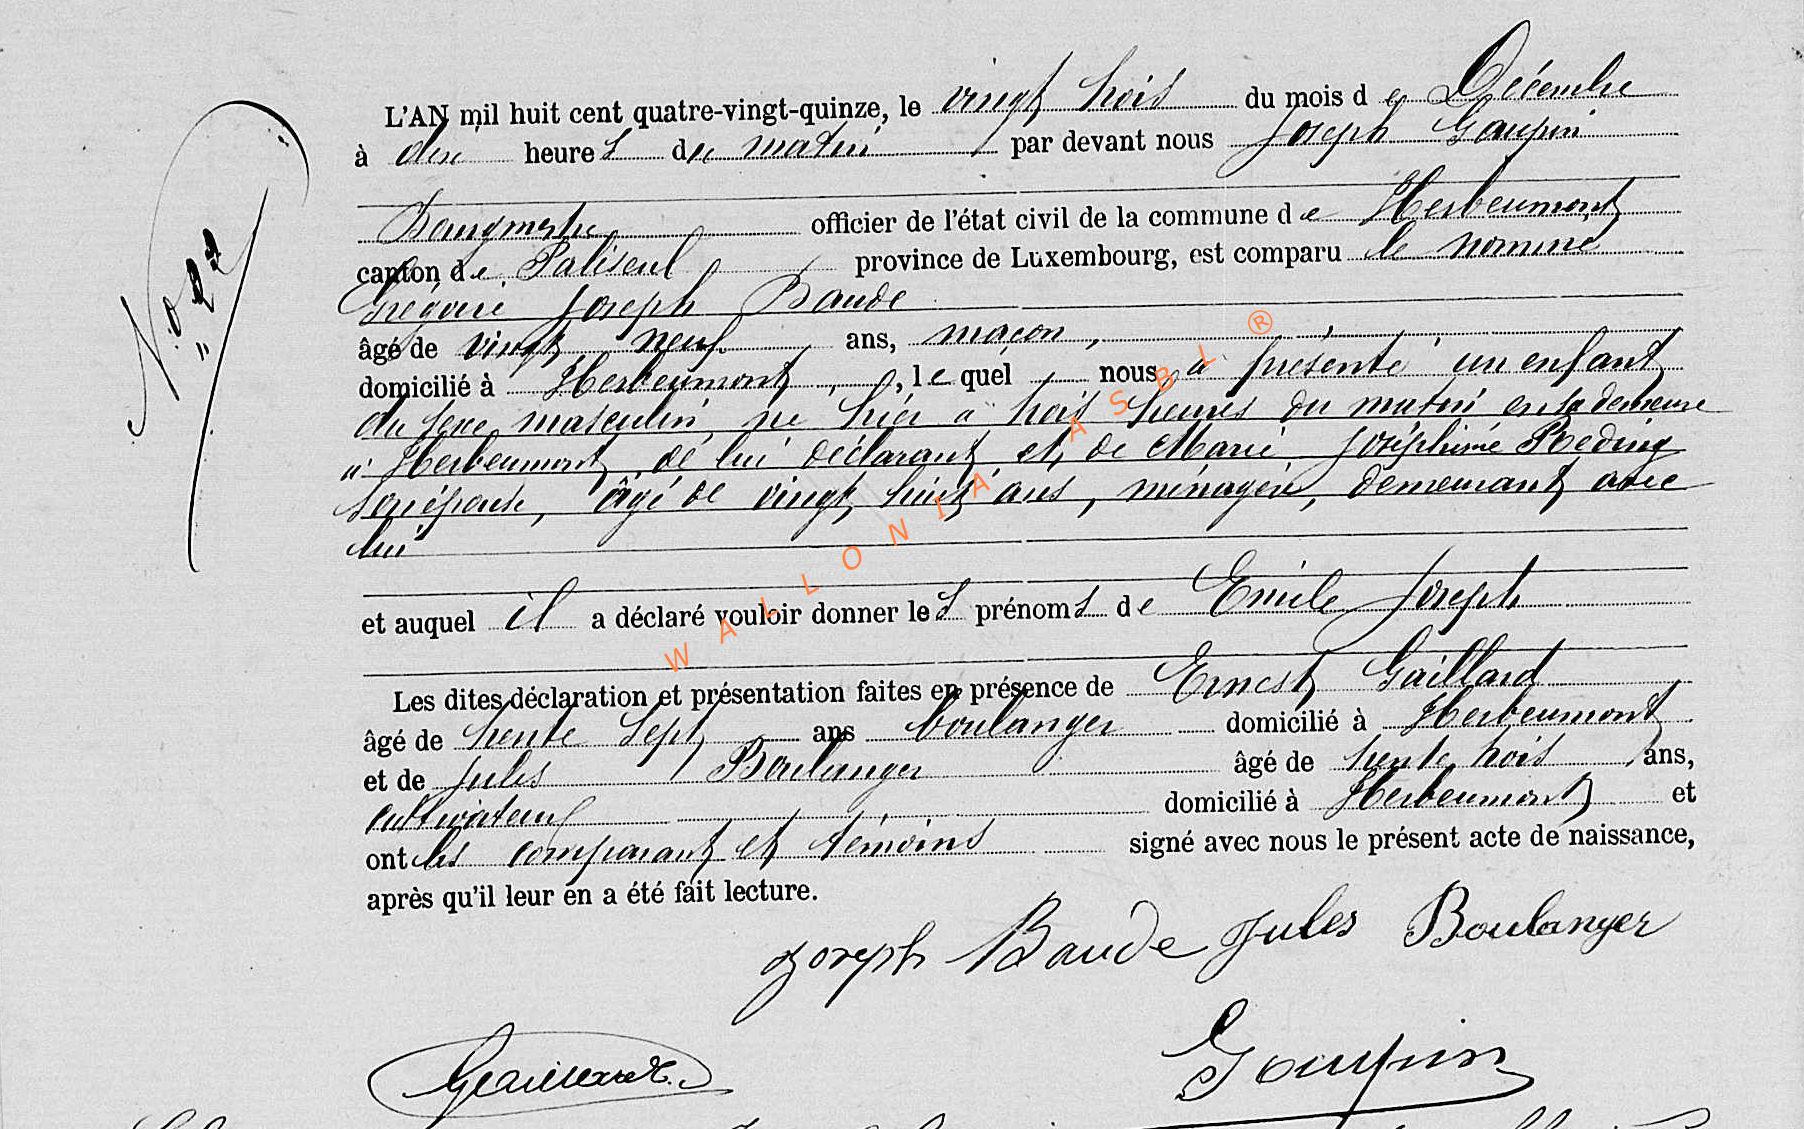 L'AN mil huit cent quatre-vingt-quinze, le vingt trois du mois de Décembre
à dix heures du matin par devant nous Joseph Goupin
Bourgmestre officier de l'état civil de la commune de Herbeumont
canton de Paliseul province de Luxembourg, est comparu le nommé
Grégoire Joseph Baude
âgé de vingt neuf ans, maçon,
domicilié à Herbeumont, lequel nous a présenté un enfant
du sexe masculin, né hier à trois heures du matin en sa demeure
à Herbeumont, de lui déclarant et de Marie Joséphine Reding
son épouse, âgé de vingt huit ans, ménagère, demeurant avec
lui
et auquel il a déclaré vouloir donner les prénoms de Emile Joseph
Les dites déclaration et présentation faites en présence de Ernest Gaillard
âgé de trente sept ans boulanger domicilié à Herbeumont
et de Jules Boulanger âgé de trente trois ans,
cultivateur domicilié à Herbeumont et
ont les comparant et témoins signé avec nous le présent acte de naissance,
après qu'il leur en a été fait lecture.
Joseph Baude Jules Boulanger
Gaillard Goupin
WALLONIA ASBL ®